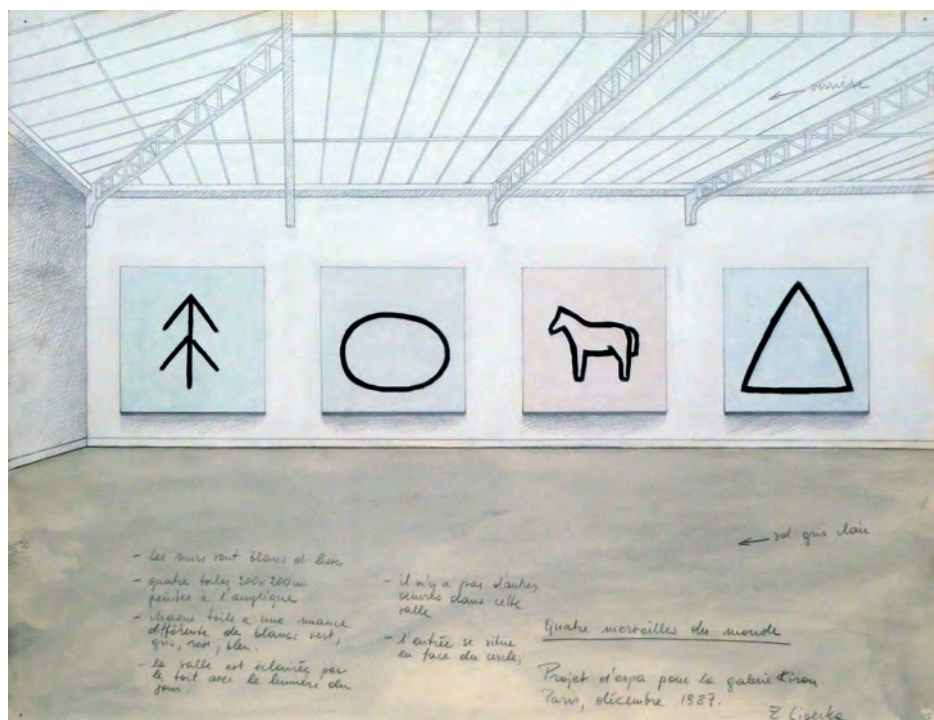 ← verrière
← sol gris clair
- Les murs sont blancs et lisses
- quatre toiles 200x200 cm
peintes à l'acrylique
- chaque toile a une nuance
différente de blanc: vert,
gris, rose, bleu.
- la salle est éclairée par
le toit avec la lumière du
jour.
- il n'y a pas d'autres
œuvres dans cette
salle
- l'entrée se situe
en face du cercle,
Quatre merveilles du monde
Projet d'expo pour la galerie
Paris, décembre 1987.